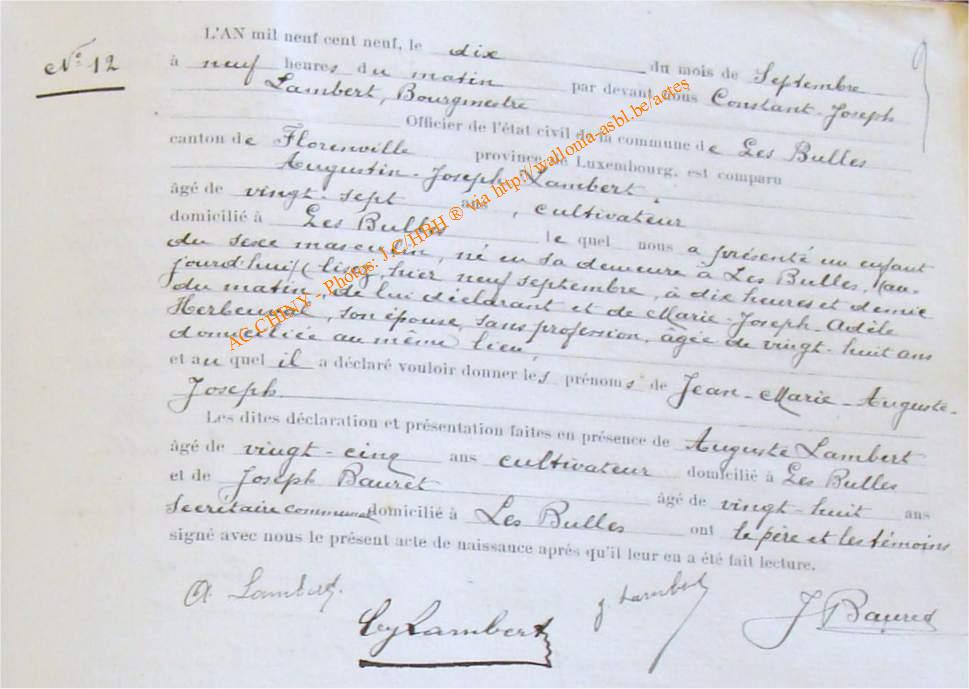 N° 12
L'AN mil neuf cent neuf, le dix du mois de Septembre
à neuf heures du matin par devant nous Constant-Joseph
Lambert, Bourgmestre
Officier de l'état civil de la commune de Les Bulles
canton de Florenville province de Luxembourg, est comparu
Augustin-Joseph Lambert,
âgé de vingt-sept ans, cultivateur
domicilié à Les Bulles lequel nous a présenté un enfant
du sexe masculin, né en sa demeure à Les Bulles, (au-
jourd'hui) lisez, hier neuf septembre, à dix heures et demie
du matin, de lui déclarant et de Marie-Joseph-Adèle
son épouse, sans profession, âgée de vingt-huit ans
domiciliée au même lieu,
et auquel il a déclaré vouloir donner les prénoms de Jean-Marie-Auguste-
Joseph.
Les dites déclaration et présentation faites en présence de Auguste Lambert
âgé de vingt-cinq ans cultivateur domicilié à Les Bulles
et de Joseph Bauret âgé de vingt-huit ans
Secrétaire communal domicilié à Les Bulles ont le père et les témoins
signé avec nous le présent acte de naissance après qu'il leur en a été fait lecture.
A. Lambert.
J. Lambert
J Bauret
Lambert
AC CHINY - Photos: J.C/HBH ® via http://wallonia-asbl.be/actes